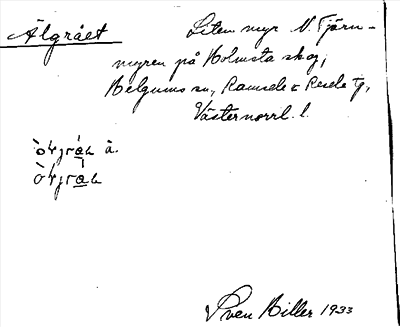 Älgrået
Liten myr N. Tjärn-
myren på Holmsta skog,
Helgums sn, Ramsele & Resele tg,
Västernorrl. l.
Sven Hiller 1933